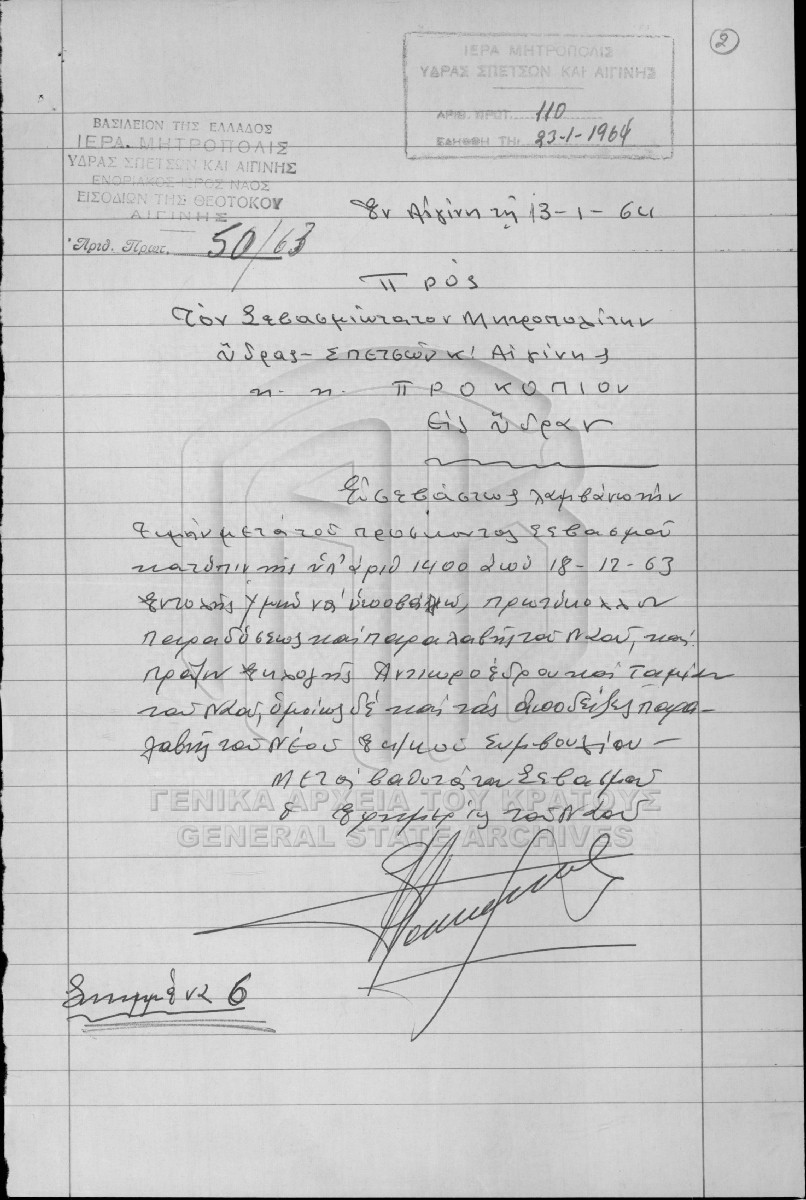 2
ΙΕΡΑ ΜΗΤΡΟΠΟΛΙΣ
ΥΔΡΑΣ ΣΠΕΤΣΩΝ ΚΑΙ ΑΙΓΙΝΗΣ
ΑΡΙΘ. ΠΡΩΤ. 110
ΕΛΗΦΘΗ ΤΗι 23-1-1964
ΒΑΣΙΛΕΙΟΝ ΤΗΣ ΕΛΛΑΔΟΣ
ΙΕΡΑ ΜΗΤΡΟΠΟΛΙΣ
ΥΔΡΑΣ ΣΠΕΤΣΩΝ ΚΑΙ ΑΙΓΙΝΗΣ
ΕΝΟΡΙΑΚΟΣ ΙΕΡΟΣ ΝΑΟΣ
ΕΙΣΟΔΙΩΝ ΤΗΣ ΘΕΟΤΟΚΟΥ
ΑΙΓΙΝΗΣ
Ἀριθ. Πρωτ. 50/63
Ἐν Αἰγίνῃ τῇ 13-1-64
Πρὸς
Τὸν Σεβασμιώτατον Μητροπολίτην
Ὕδρας - Σπετσῶν κ' Αἰγίνης
κ. κ. ΠΡΟΚΟΠΙΟΝ
Εἰς Ὕδραν
Εὐσεβάστως λαμβάνω τὴν
τιμὴν μετὰ τοῦ προσήκοντος σεβασμοῦ
κατόπιν τῆς ὑπ' ἀριθ 1400 ἀπὸ 18-12-63
ἐντολῆς ὑμῶν νὰ ὑποβάλω, πρωτόκολλον
παραδόσεως καὶ παραλαβῆς τοῦ Ναοῦ, καὶ
πρᾶξιν ἐκλογῆς Ἀντιπροέδρου καὶ Ταμίου
τοῦ Ναοῦ, ὁμοίως δὲ καὶ τὰς ἀποδείξεις παρα-
λαβῆς τοῦ Νέου Ἐκ/κοῦ Συμβουλίου -
Μετὰ βαθυτάτου Σεβασμοῦ
ὁ Ἐφημέριος τοῦ Ναοῦ
Συνημμένα 6
ΓΕΝΙΚΑ ΑΡΧΕΙΑ ΤΟΥ ΚΡΑΤΟΥΣ
GENERAL STATE ARCHIVES